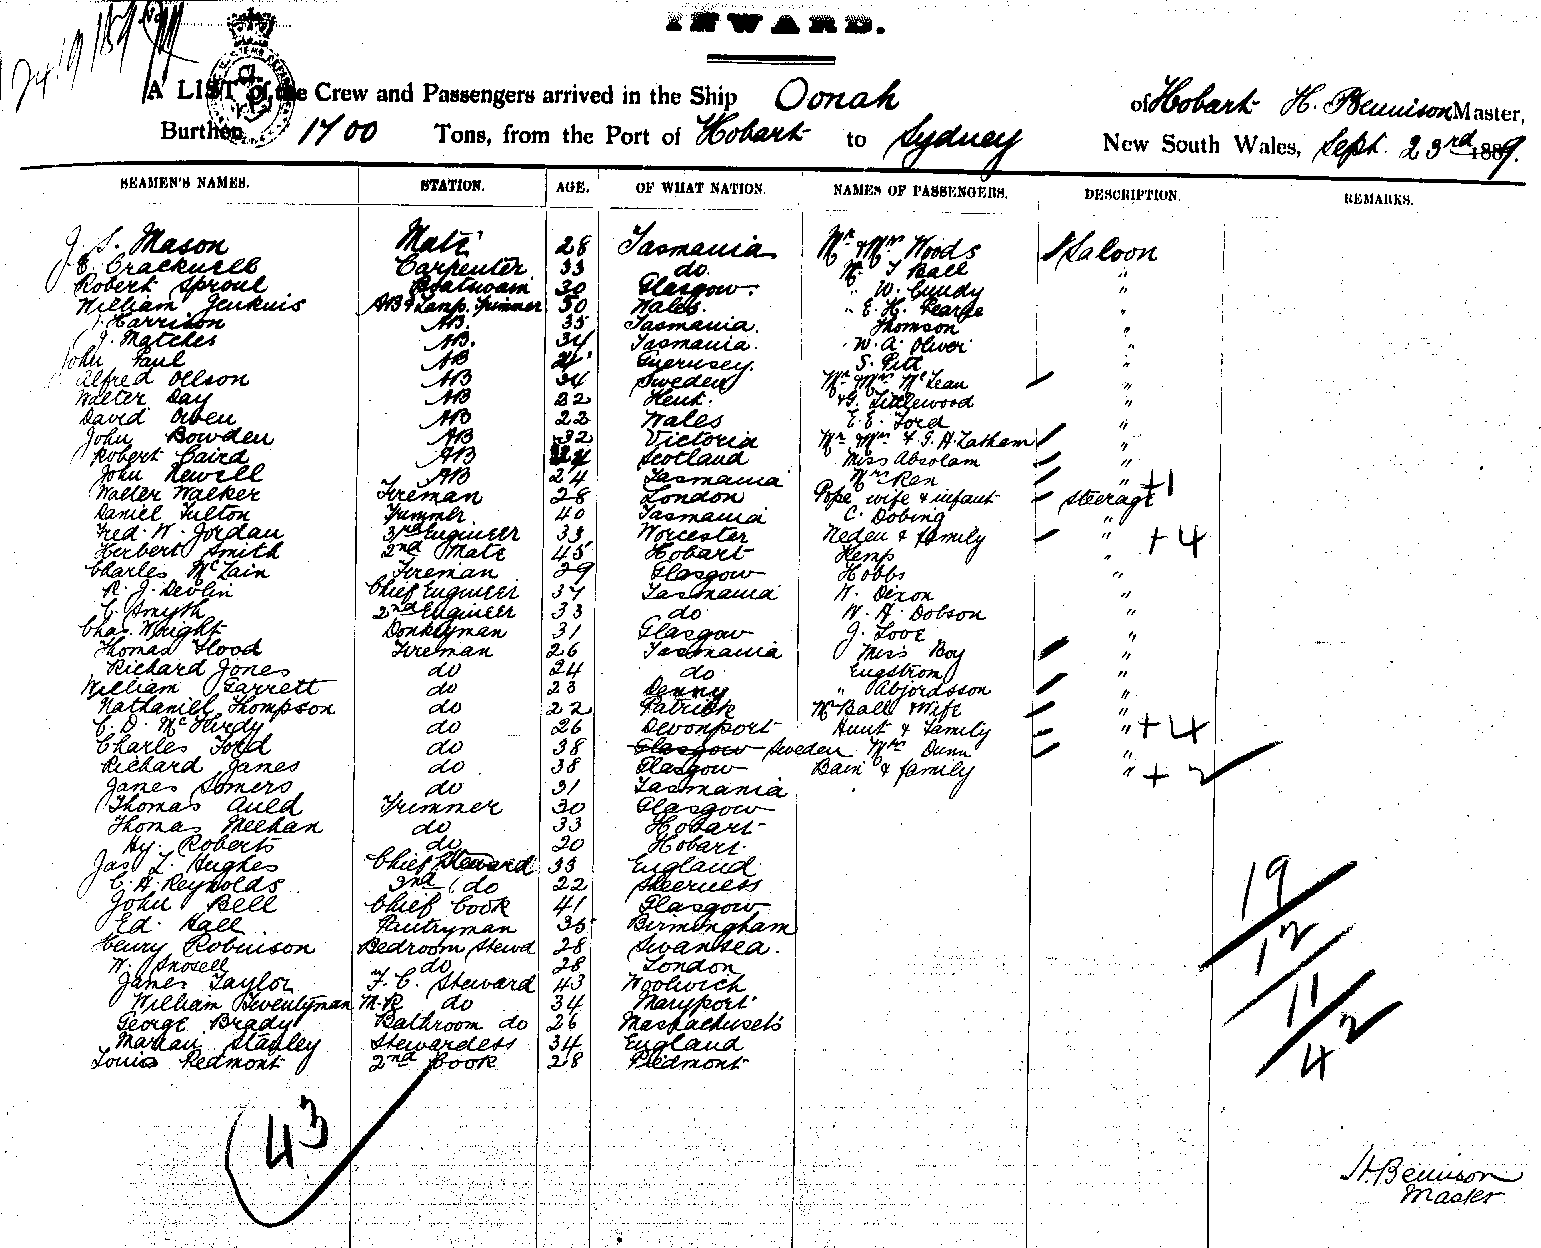 INWARD.
A LIST of the Crew and Passengers arrived in the Ship Oonah of Hobart H. Bennison Master,
Burthen 1700 Tons, from the Port of Hobart to Sydney New South Wales, Sept. 23rd 1889.
SEAMEN'S NAMES. STATION. AGE. OF WHAT NATION. NAMES OF PASSENGERS. DESCRIPTION. REMARKS.
J. S. Mason Mate 28 Tasmania Mr & Mrs Woods Saloon
E. Cracknell Carpenter 33 do. Mr T Ball "
Robert Sproul Boatswain 30 Glasgow. " W. Cundy "
William Jenkins AB & Lamp. Trimmer 50 Wales. " E. H. Pearse "
J. Harrison AB. 35 Tasmania. Thomson "
J. Matches AB. 34 Tasmania. " W. A. Oliver "
John Paul AB Guernsey. S. Pitt "
Alfred Ollson AB 34 Sweden Mr Mrs McLean "
Walter Day AB 22 Kent. & G. Littlewood "
David Owen AB 22 Wales E. E. Ford "
John Bowden AB 32 Victoria Mr Mrs & G. A Latham "
Robert Caird AB Scotland Miss Absolam "
John Newell AB 24 Tasmania Mrs Ren " +1
Walter Walker Fireman 28 London Pope, wife & infant Steerage
Daniel Fulton Trimmer 40 Tasmania C. Dobing "
Fred. W. Jordan 3rd Engineer 33 Worcester Neden & family " +4
Herbert Smith 2nd Mate 45 Hobart Hemp "
Charles McLain Fireman 29 Glasgow Hobbs "
R. J. Devlin Chief Engineer 37 Tasmania W. Dixon "
C. Smyth 2nd Engineer 33 do W. H. Dobson "
Chas. Wright Donkeyman 31 Glasgow J. Love "
Thomas Flood Fireman 26 Tasmania Miss Boy "
Richard Jones do 24 do Engstrom "
William Garrett do 23 Denny " Abjordsson "
Nathaniel Thompson do 22 Patrick Mr Ball & Wife "
C. D. McHardy do 26 Devonport Hunt & Family " +4
Charles Ford do 38 Glasgow Sweden Mrs Dunn "
Richard James do 38 Glasgow Bain & family " +2
James Somers do 31 Tasmania
Thomas Auld Trimmer 30 Glasgow
Thomas Meehan do 33 Hobart
Hy. Roberts do 20 Hobart.
Jas L. Hughes Chief Steward 33 England
C. A. Reynolds 2nd do 22 Sheerness
John Bell Chief Cook 41 Glasgow
Ed. Hall Pantryman 35 Birmingham
Henry Robinson Bedroom Stewd 28 Swansea.
W. Snosell do 28 London
James Taylor F. C. Steward 43 Woolwich
William Beventyman M.R do 34 Maryport
George Brady Bathroom do 26 Massachusets
Marian Stanley Stewardess 34 England
Louis Redmont 2nd Cook 28 Piedmont
19
12
11
2
4
43
H. Bennison
Master